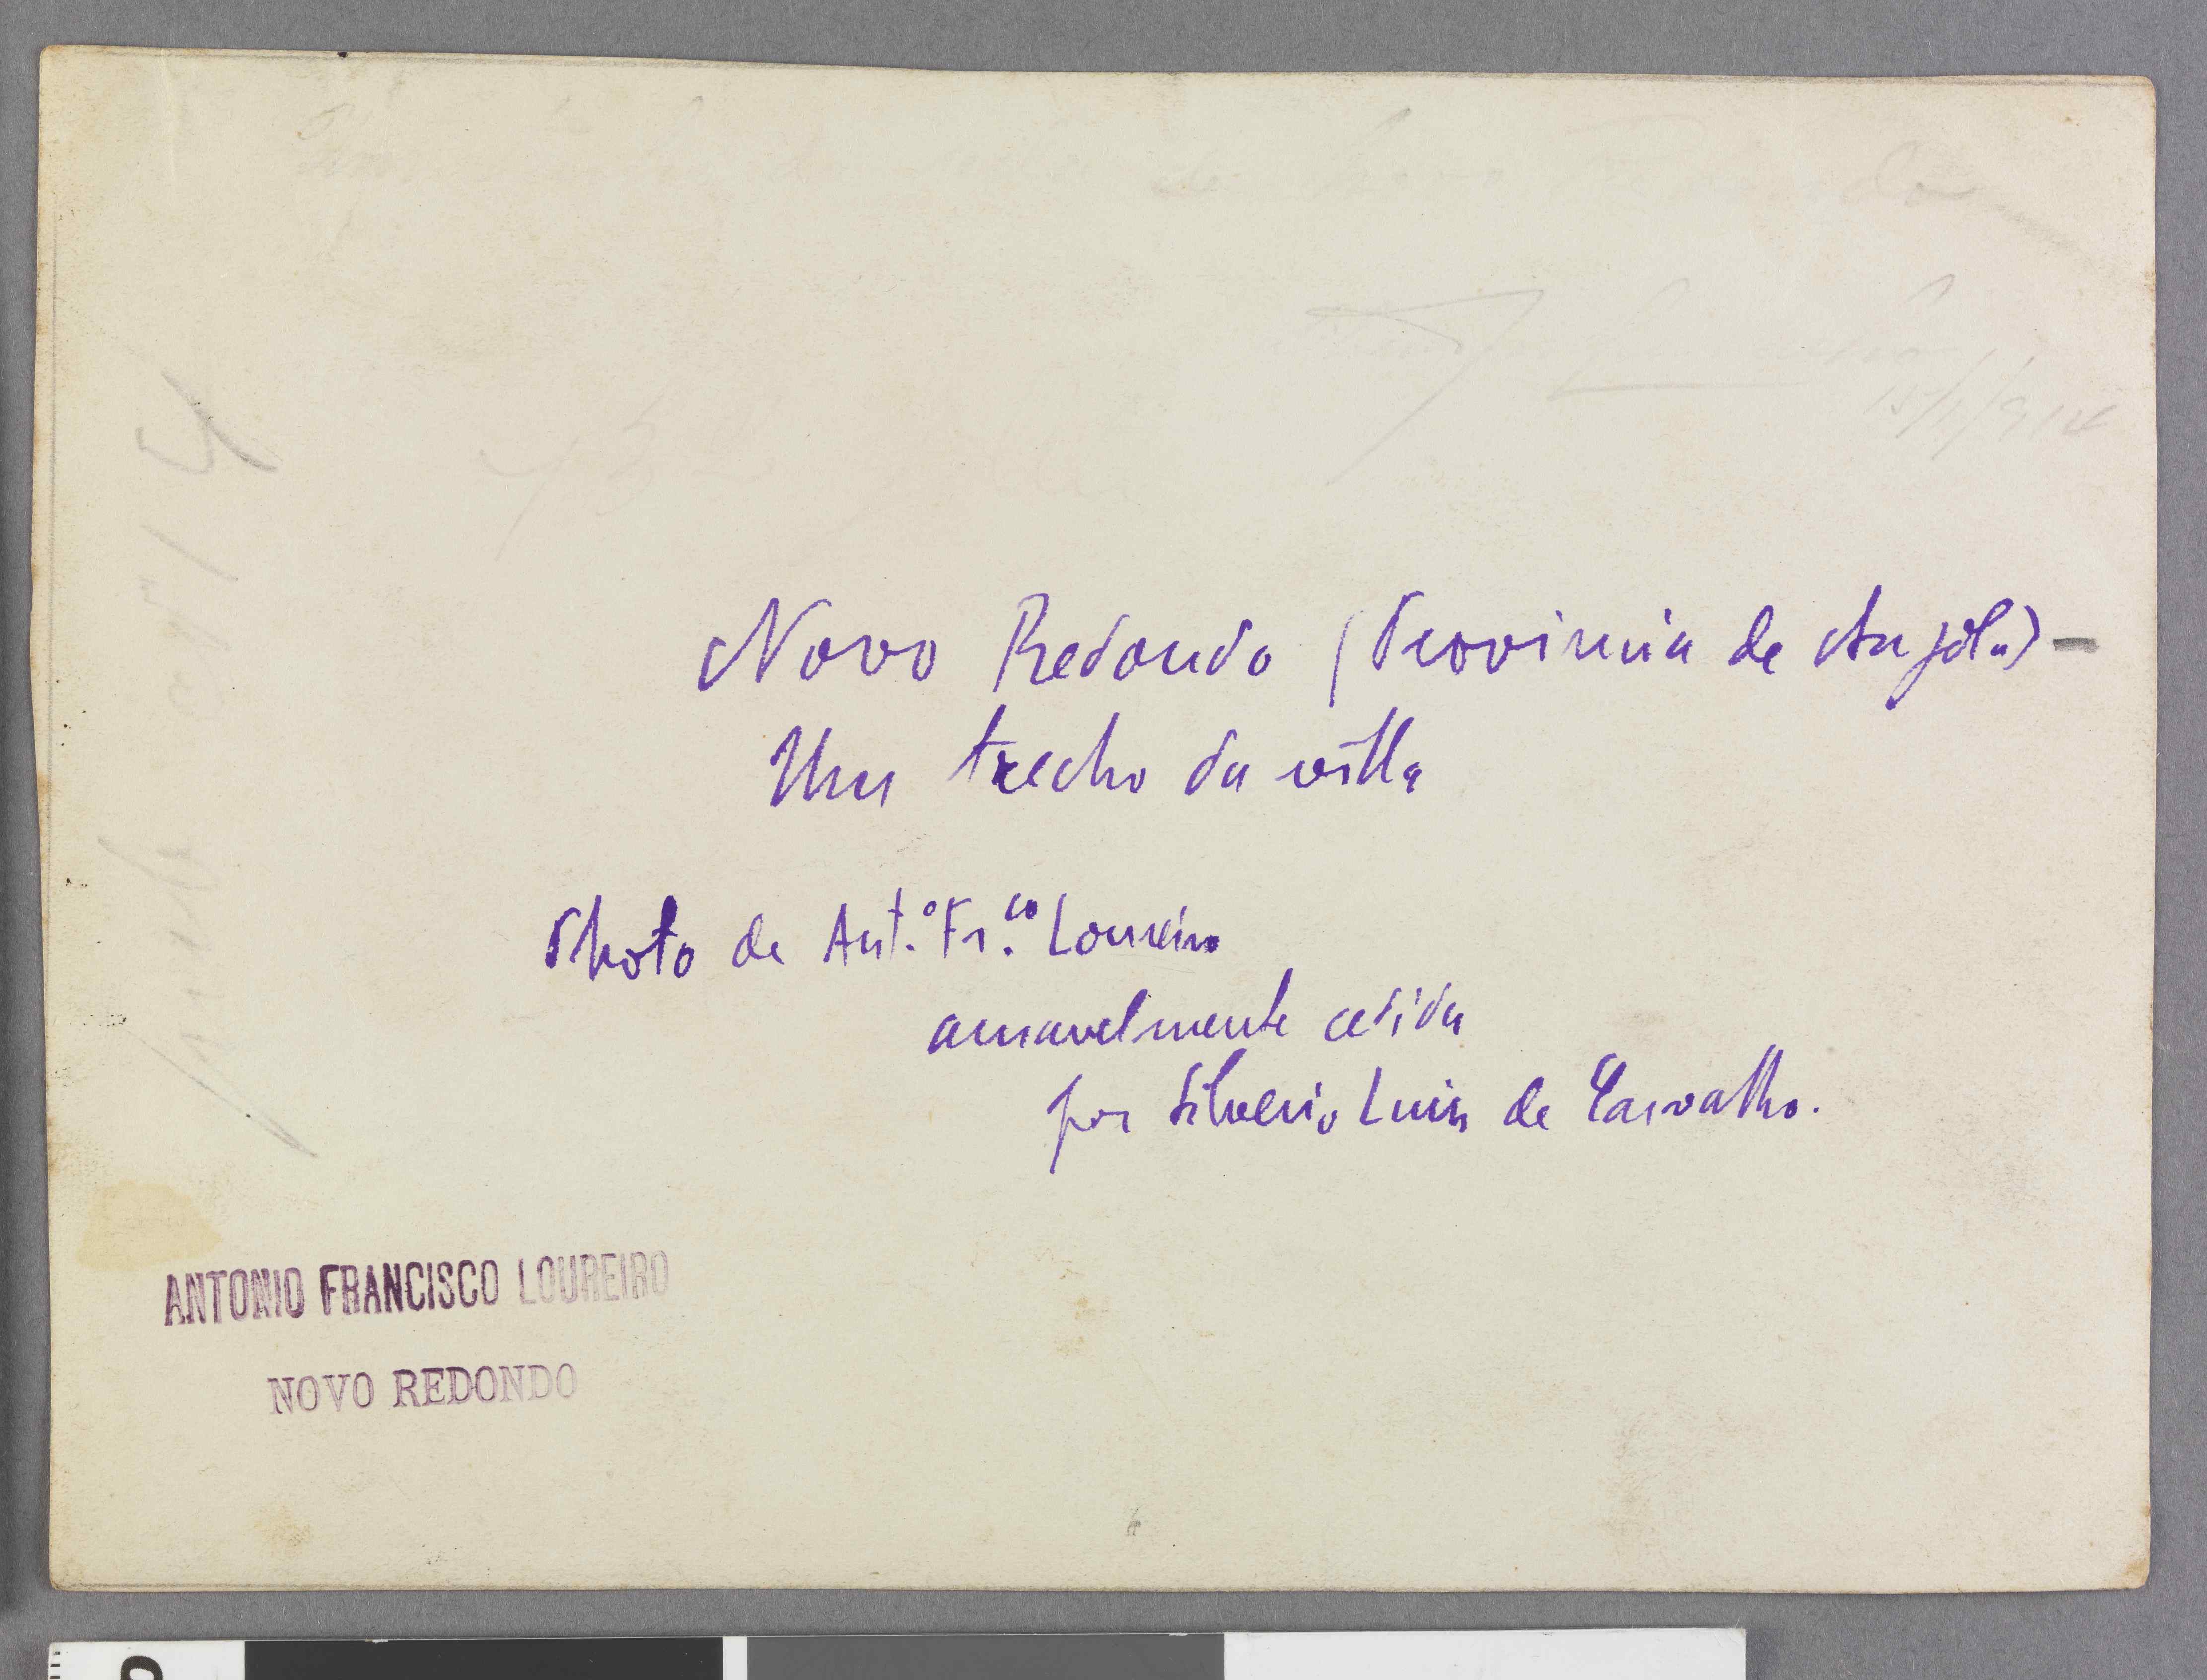 15/1/914
Novo Redondo (Provincia de Angola) -
Um trecho da villa
Photo de Ant.º Fr.co Loureiro
amavelmente cedida
por Silverio Luis de Carvalho.
ANTONIO FRANCISCO LOUREIRO
NOVO REDONDO